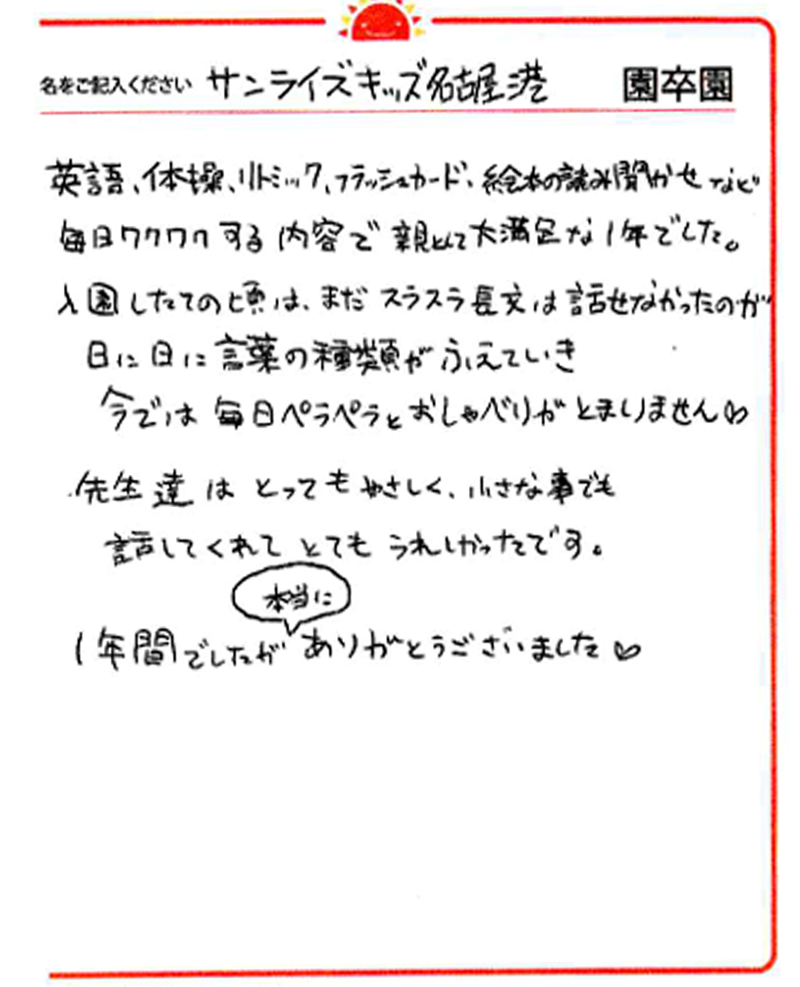 名をご記入ください サンライズキッズ名古屋港 園卒園
英語、体操、リトミック、フラッシュカード、絵本の読み聞かせなど
毎日ワクワクする内容で親として大満足な1年でした。
入園したての頃は、まだスラスラ長文は話せなかったのが
日に日に言葉の種類がふえていき
今では毎日ペラペラとおしゃべりがとまりません♡
先生達はとってもやさしく、小さな事でも
話してくれてとてもうれしかったです。
本当に
1年間でしたがありがとうございました♡